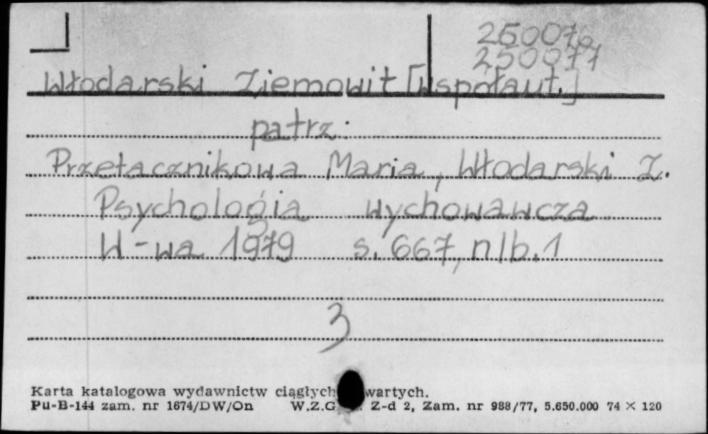 250076
250077
Włodarski Ziemowit [współaut.]
patrz:
Przetacznikowa Maria, Włodarski Z.
Psychologia wychowawcza
W-wa 1979 s. 667, nlb. 1
3
Karta katalogowa wydawnictw ciągłych wartych.
Pu-B-144 zam. nr 1674/DW/On W.Z.G Z-d 2, Zam. nr 988/77, 5.650.000 74 × 120